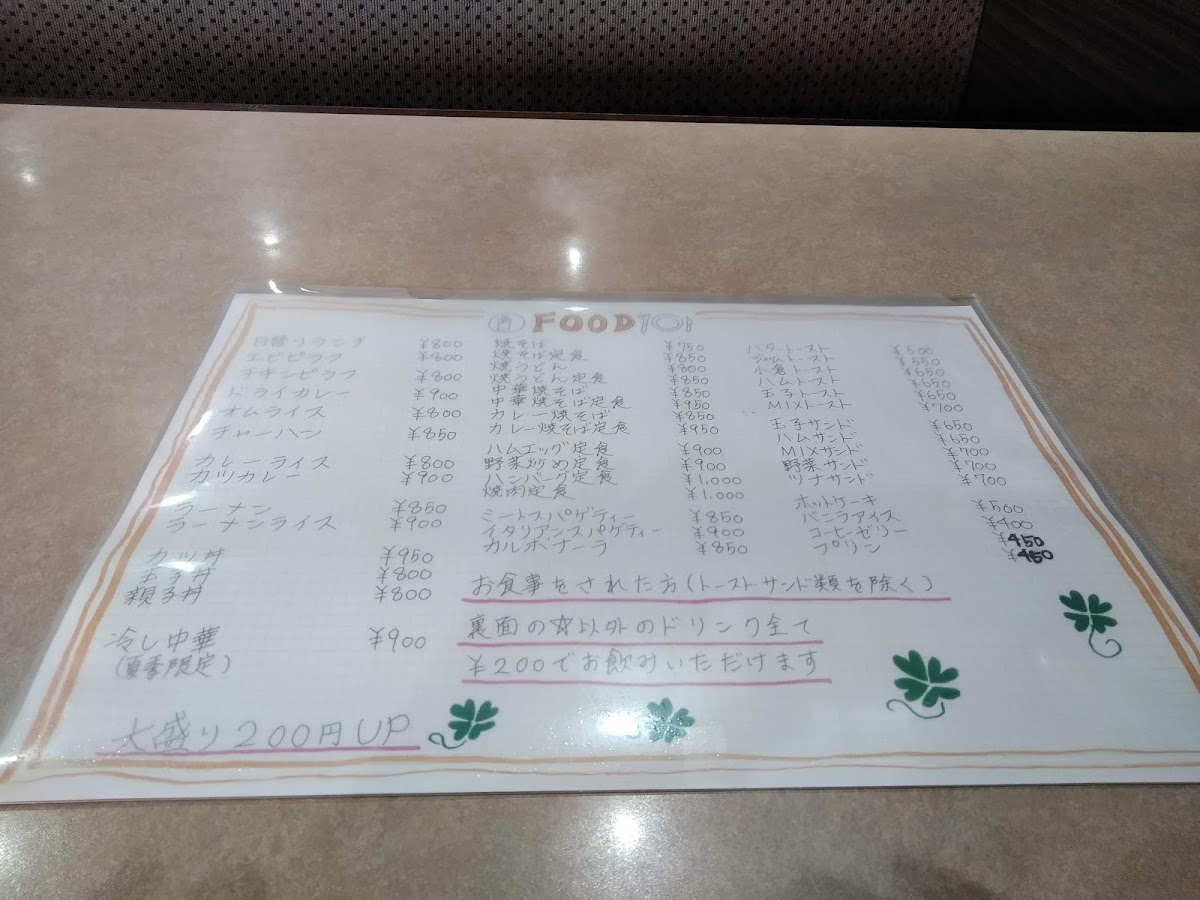 FOOD
日替りランチ ¥800
エビピラフ ¥800
チキンピラフ ¥800
ドライカレー ¥900
オムライス ¥800
チャーハン ¥850
カレーライス ¥800
カツカレー ¥900
ラーメン ¥850
ラーメンライス ¥900
カツ丼 ¥950
玉子丼 ¥800
親子丼 ¥800
冷し中華 ¥900
(夏季限定)
大盛り200円UP
焼そば ¥750
焼そば定食 ¥850
焼うどん ¥800
焼うどん定食 ¥850
中華焼そば ¥850
中華焼そば定食 ¥950
カレー焼そば ¥850
カレー焼そば定食 ¥950
ハムエッグ定食 ¥900
野菜炒め定食 ¥900
ハンバーグ定食 ¥1,000
焼肉定食 ¥1,000
ミートスパゲティー ¥850
イタリアンスパゲティー ¥900
カルボナーラ ¥850
バタートースト ¥500
ジャムトースト ¥550
小倉トースト ¥650
ハムトースト ¥650
玉子トースト ¥650
MIXトースト ¥700
玉子サンド ¥650
ハムサンド ¥650
MIXサンド ¥700
野菜サンド ¥700
ツナサンド ¥700
ホットケーキ ¥500
バニラアイス ¥400
コーヒーゼリー ¥450
プリン ¥450
お食事をされた方(トーストサンド類を除く)
裏面の☆以外のドリンク全て
¥200でお飲みいただけます